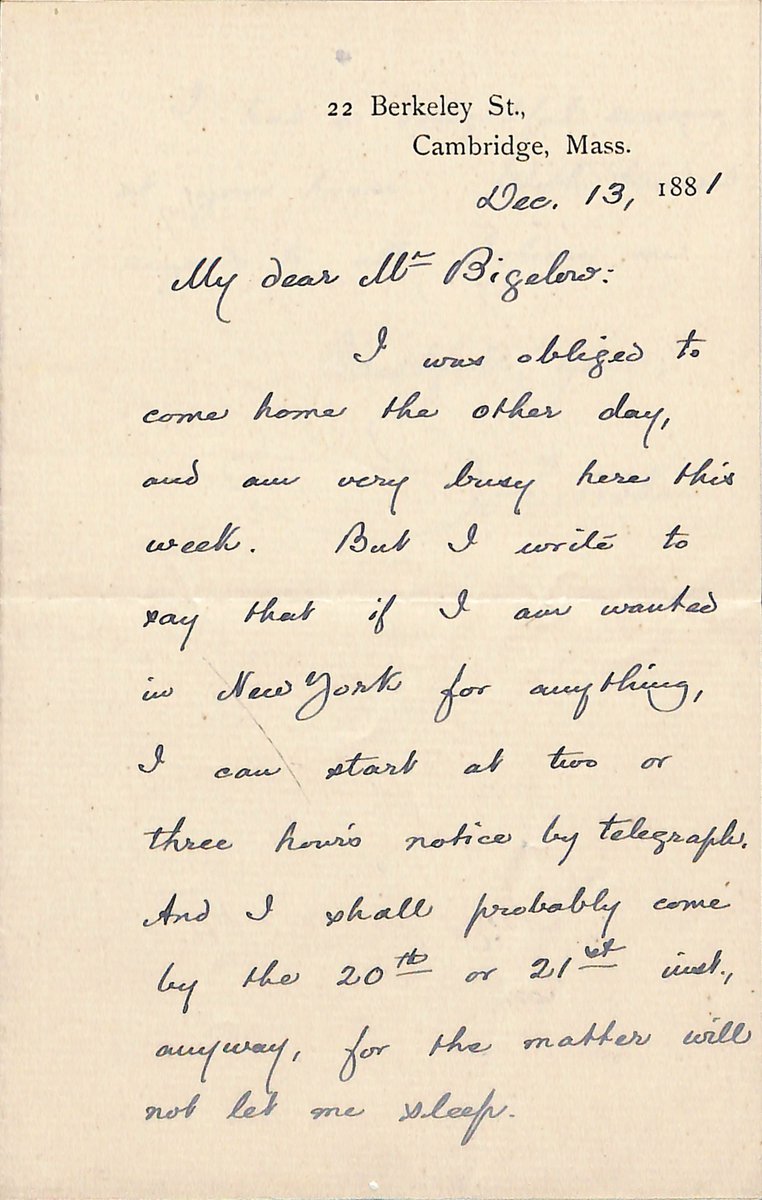 22 Berkeley St.,
Cambridge, Mass.
Dec. 13, 1881
My dear Mr Bigelow:
I was obliged to
come home the other day,
and am very busy here this
week. But I write to
say that if I am wanted
in New York for anything,
I can start at two or
three hours notice by telegraph.
And I shall probably come
by the 20th or 21st inst.,
anyway, for the matter will
not let me sleep.